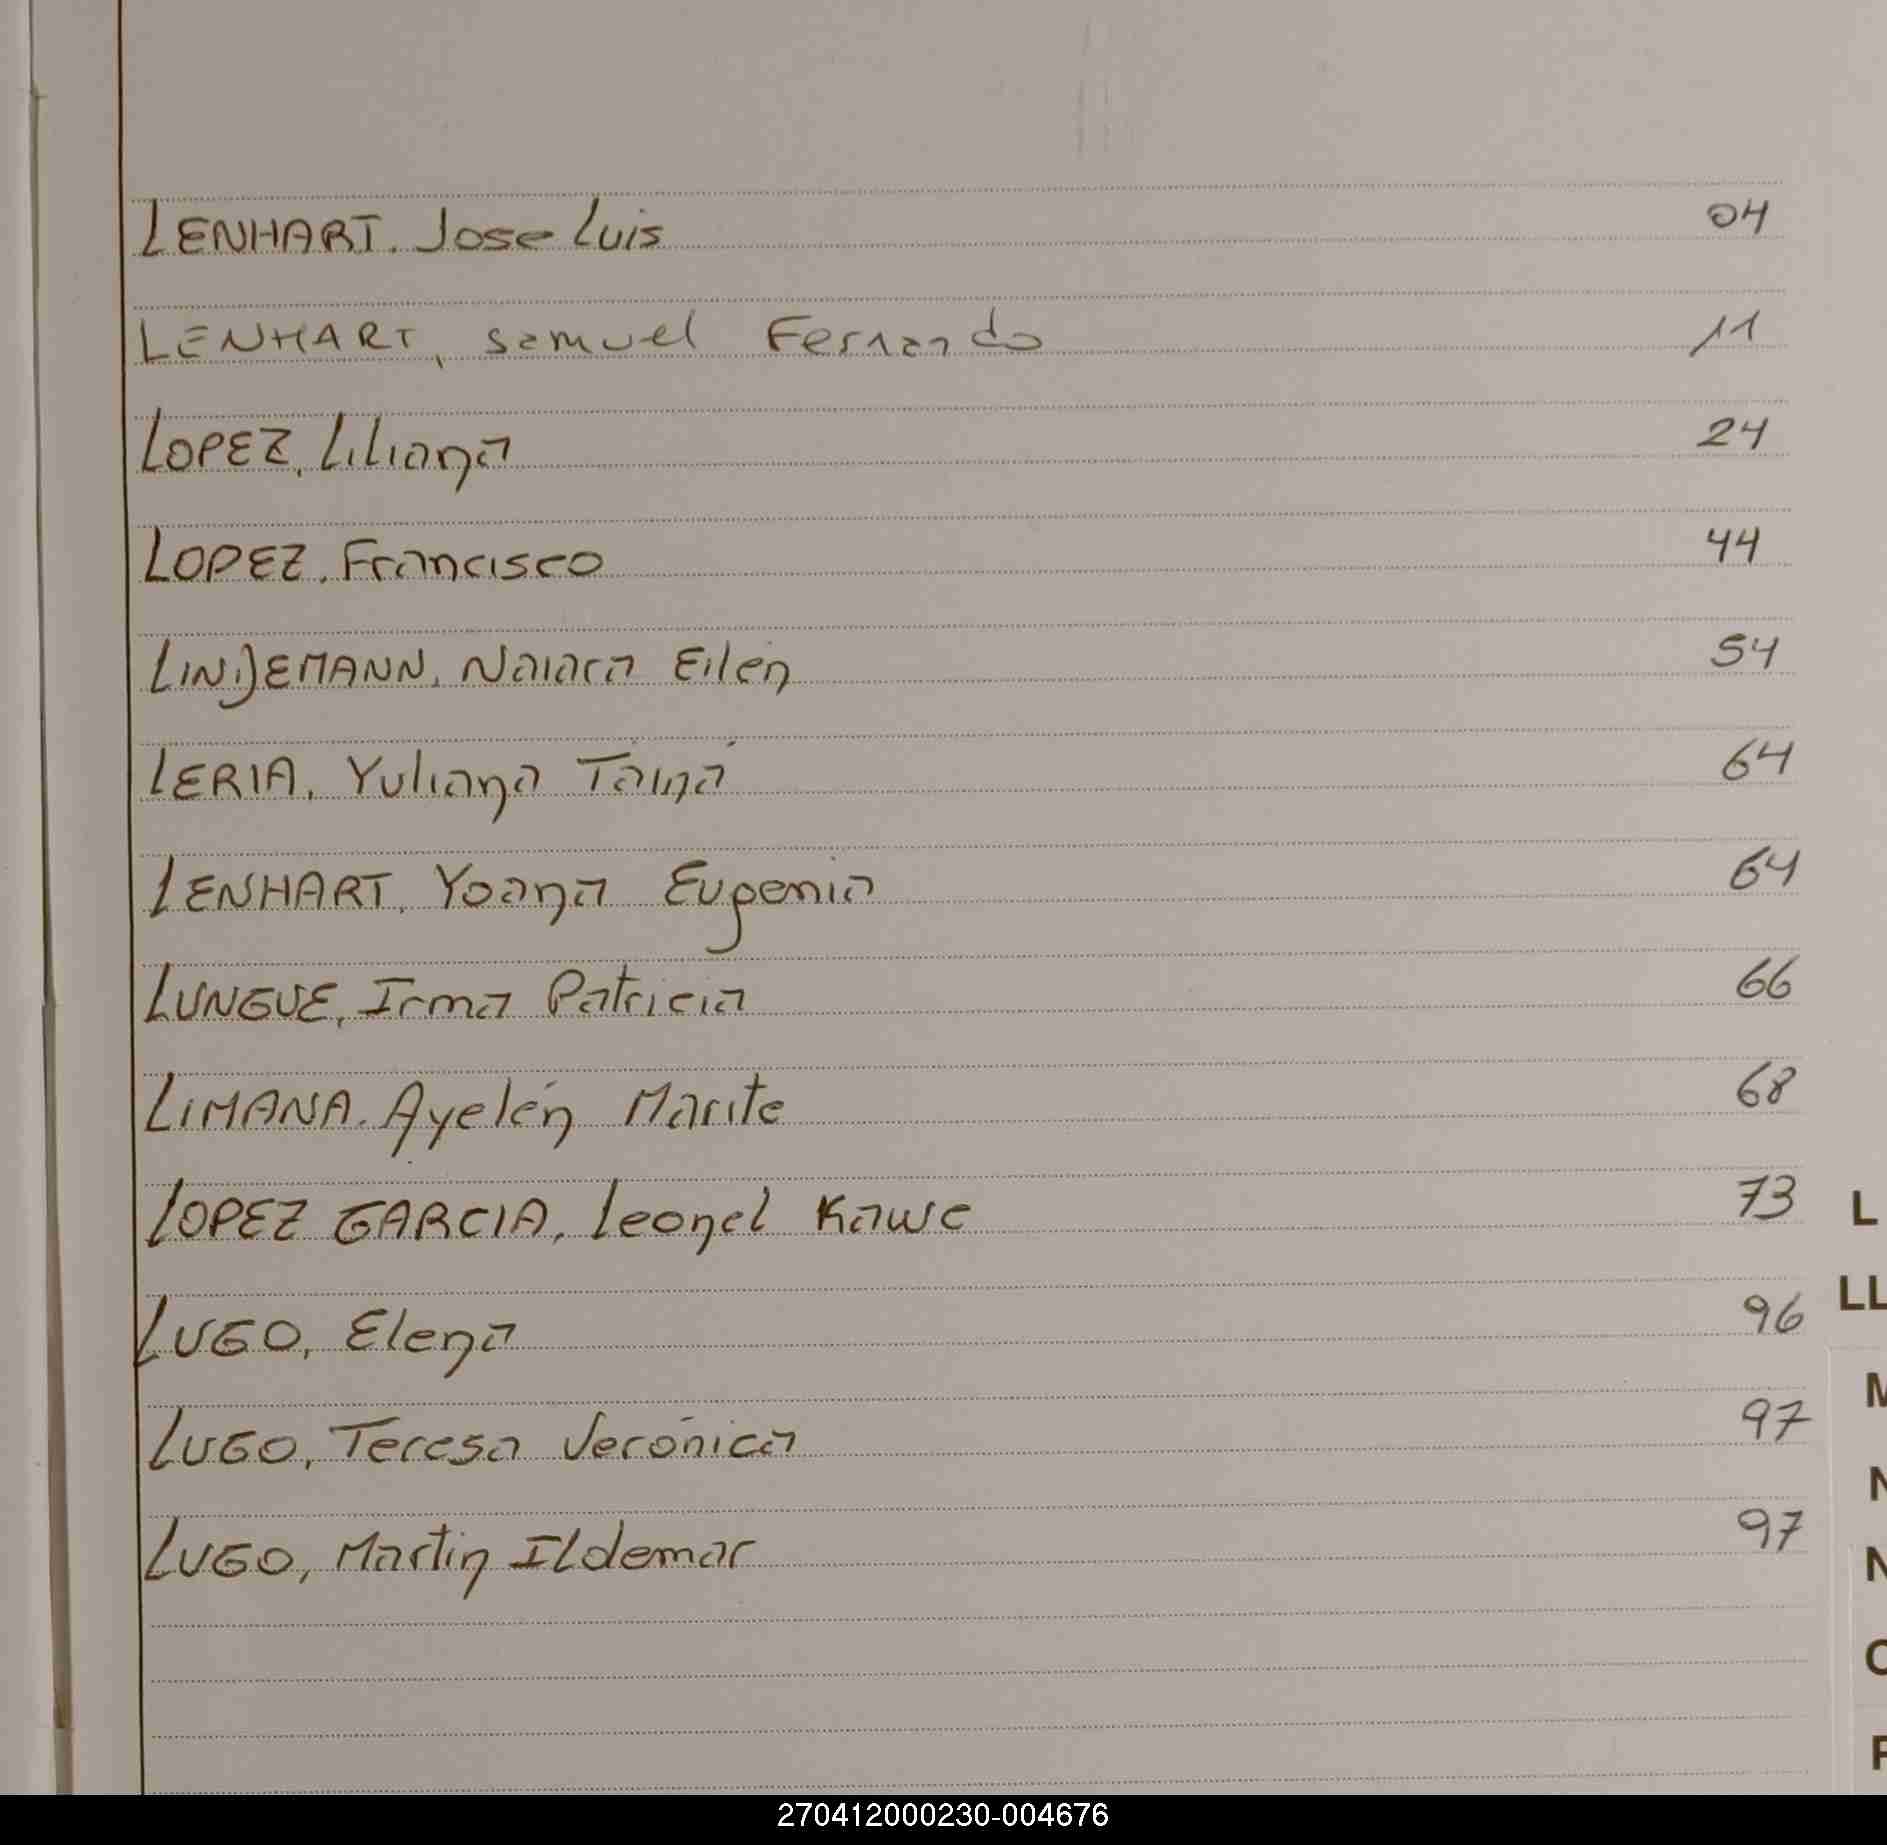 LENHART. Jose Luis 04
LENHART, Samuel Fernando 11
LOPEZ, Liliana 24
LOPEZ, Francisco 44
LINDEMANN, Naiara Eilén 54
LERIA, Yuliana Tainá 64
LENHART, Yoana Eugenia 64
LUNGUE, Irma Patricia 66
LIMANA. Ayelén Marite 68
LOPEZ GARCIA, Leonel Kawe 73
L
LL
LUGO, Elena 96
LUGO, Teresa Verónica 97
LUGO, Martin Ildemar 97
270412000230-004676